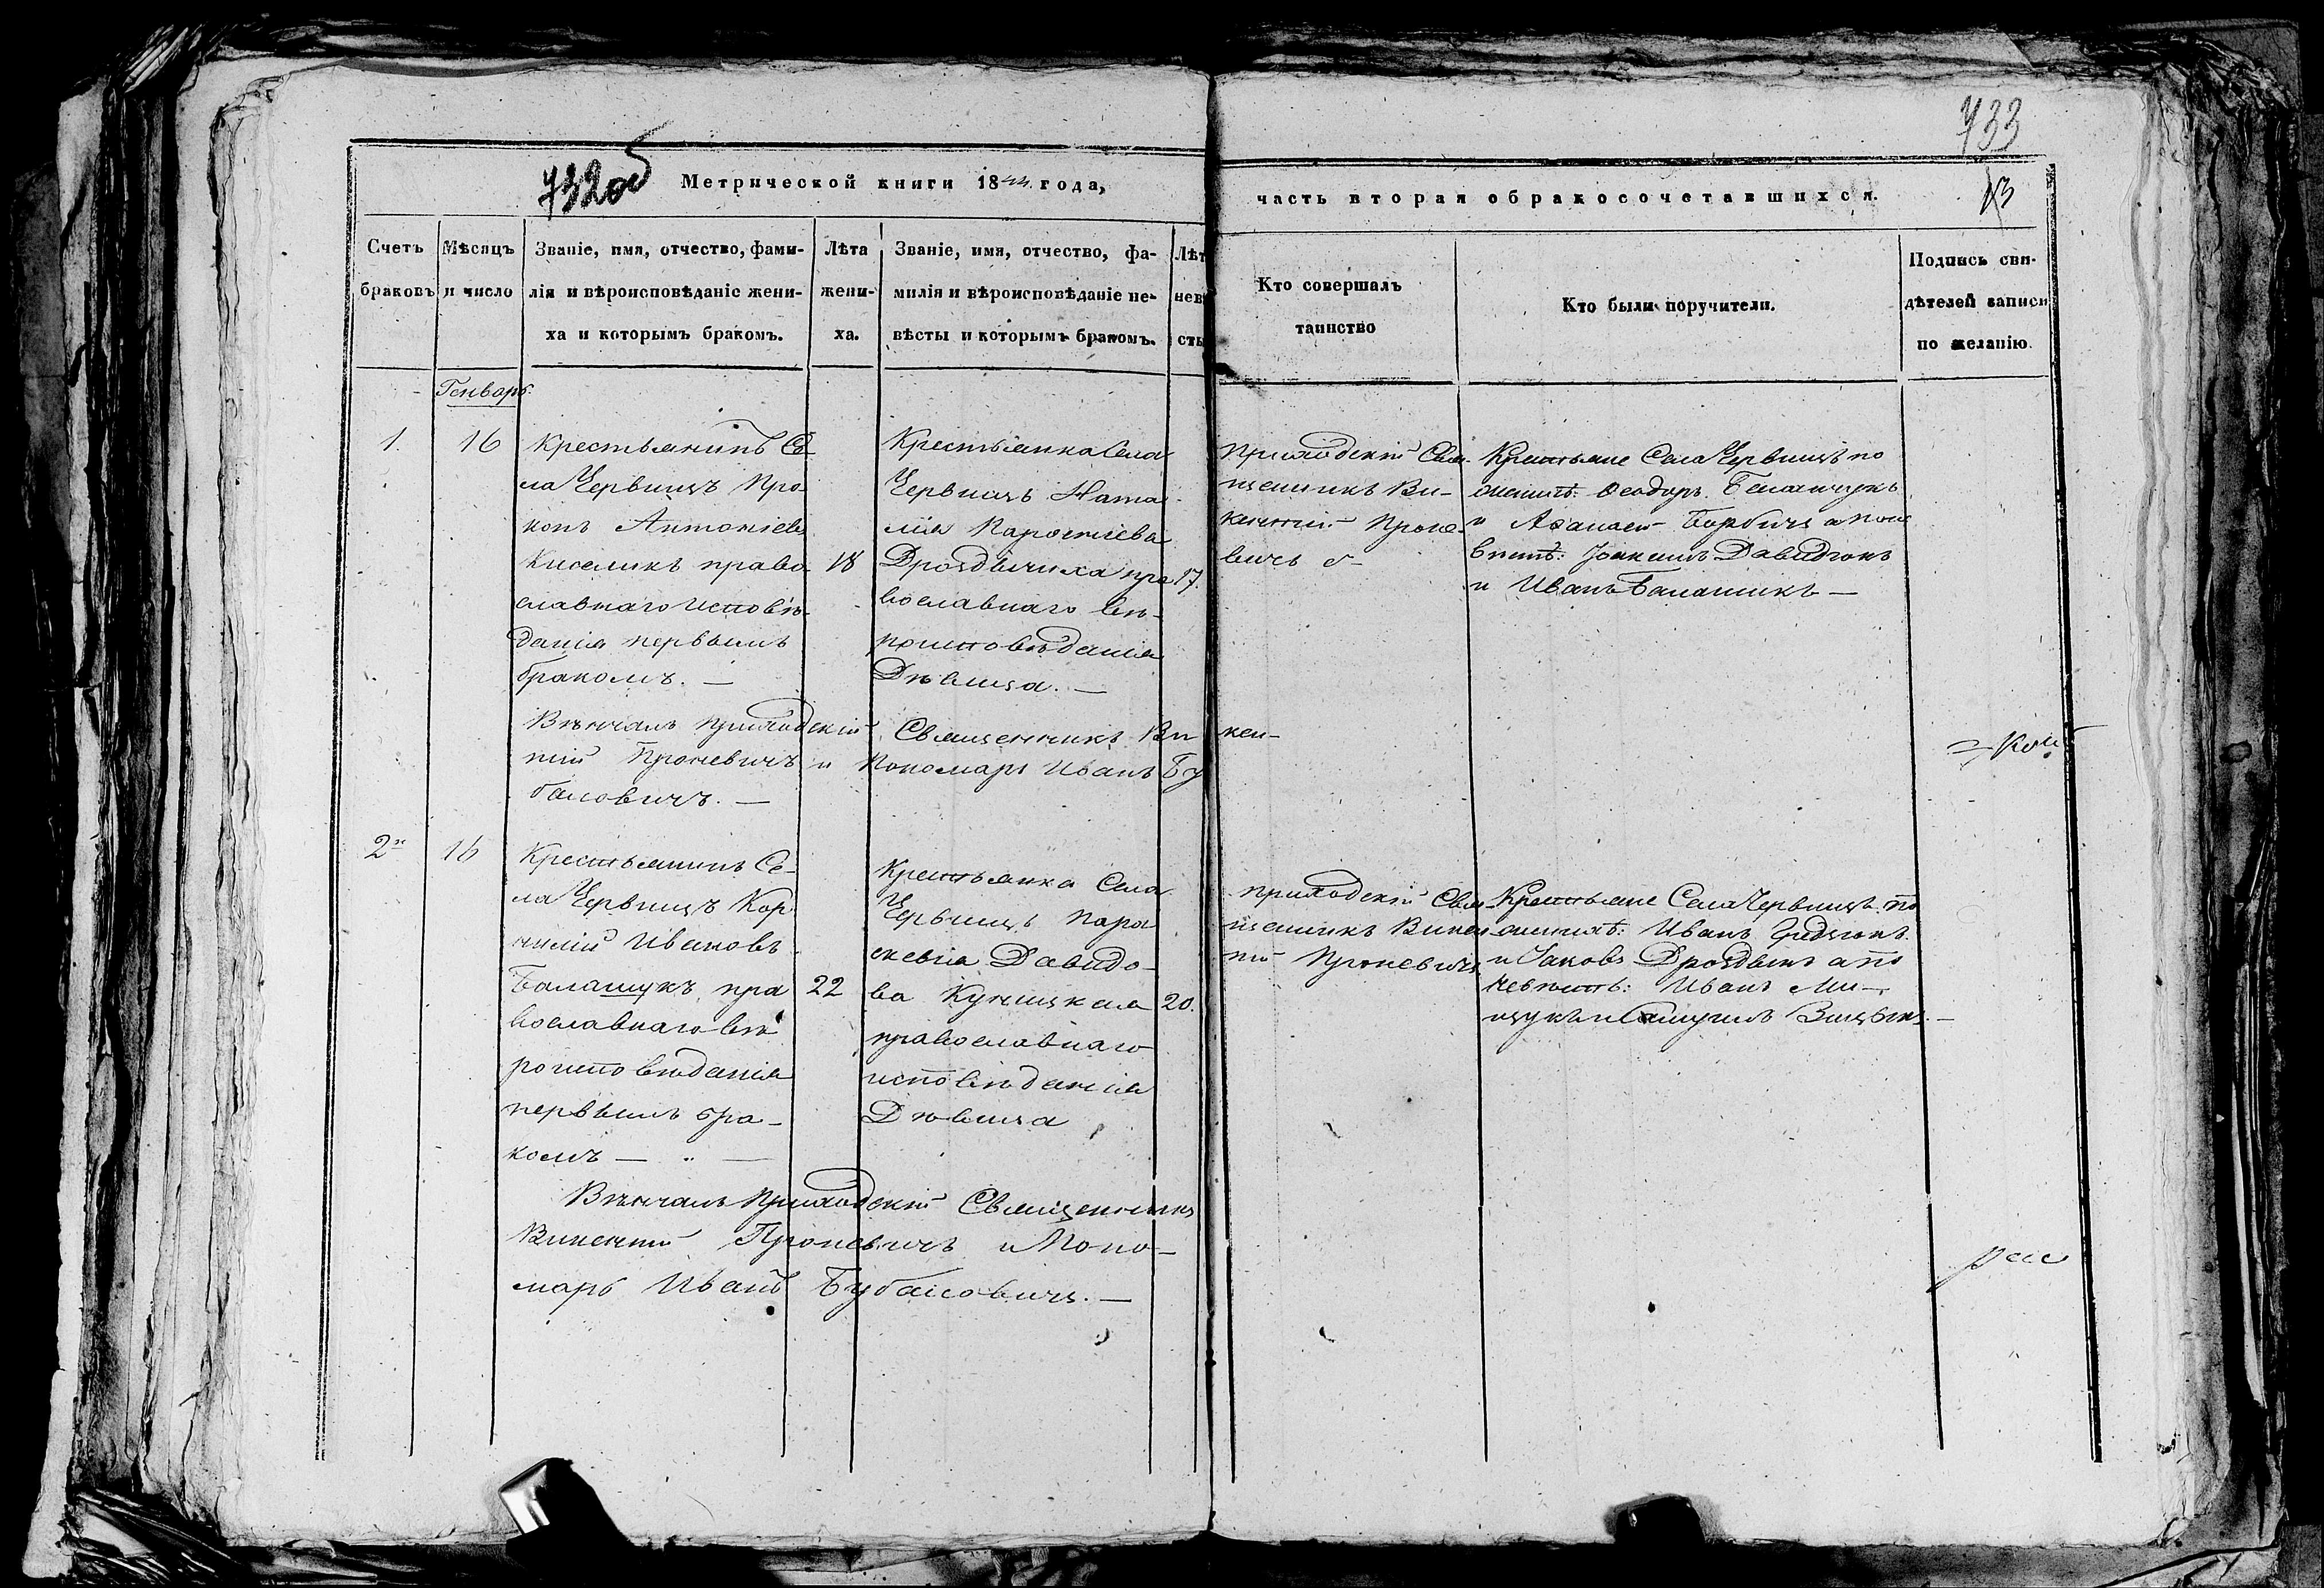 733
732об Метрической книги 1844 года,
часть вторая о бракосочетавшихся.
13
Счетъ браковъ
Мѣсяцъ и число
Званіе, имя, отчество, фами-
лія и вѣроисповѣданіе жени-
ха и которымъ бракомъ.
Лѣта
жени-
ха.
Званіе, имя, отчество, фа-
милія и вѣроисповѣданіе не-
вѣсты и которымъ бракомъ.
Лѣт
нев
сты
Кто совершалъ
таинство
Кто были поручители.
Подпись сви-
дѣтелей записи
по желанію.
Генварь.
1.
16
Крестьянинъ Се
ла Червищъ Про-
копъ Антоніевъ
Киселикъ право-
славнаго исповѣ-
данія первымъ
бракомъ. —
18
Крестьянка Села
Червищъ Ната-
лія
Дроздычиха пра
вославнаго вѣ-
роисповѣданія
Дѣвица. —
17.
Приходскій Свя-
щенникъ Ви-
кентій Проне-
вичъ
Крестьяне Села Червищъ по
женихѣ: Ѳеодоръ
и Аѳанасій а по не
вѣстѣ: Іоакимъ Давидюкъ
и Иванъ —
Вѣнчалъ Приходскій Священникъ Ви кен-
тій Проневичъ и Пономарь Иванъ Бу
. —
2й
16
Крестьянинъ Се-
ла Червищъ Кор-
нилій Ивановъ
Балашукъ пра
вославнаго вѣ
роисповѣданія
первымъ бра-
комъ — " —
22
Крестьянка Села
Червищъ Пара
скевія Давидо-
ва Куницкая
православнаго
исповѣданія
Дѣвица
20.
Приходскій Свя
щенникъ Викен
тій Проневичъ
Крестьяне Села Червищъ по
женихѣ: Иванъ
и Іаковъ Дроздыкъ а по
невѣстѣ: Иванъ Ми-
щукъ и Самуилъ —
Вѣнчалъ Приходскій Священникъ
Викентій Проневичъ и Поно-
марь Иванъ . —